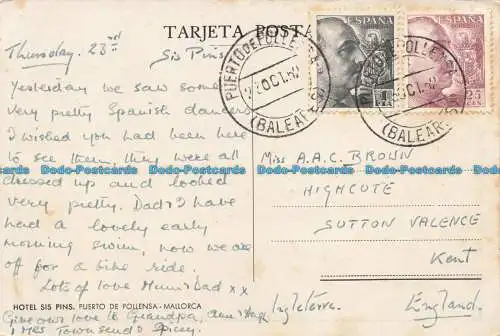 TARJETA POSTAL
Thursday. 23rd
Sis Pins.
Yesterday we saw some
very pretty Spanish dancers
I wished you had been here
to see them, they were all
dressed up and looked
very pretty. Dad & I have
had a lovely early
morning swim, now we are
off for a bike ride.
Lots of love Mum & Dad xx
HOTEL SIS PINS. PUERTO DE POLLENSA - MALLORCA
Give our love to Grandpa,
Mrs Townsend & Spicey.
PUERTO DE POLLENSA
OCT. 52
(BALEARES)
ESPAÑA
ESPAÑA
25
CTS
POLLENSA
OCT. 52
(BALEARES)
Miss A.A.C. BROWN
HIGHCOTE
SUTTON VALENCE
Kent
Inglaterra.
England.
Dodo-Postcards Dodo-Postcards Dodo-Postcards Dodo-Postcards Dodo-Postcards